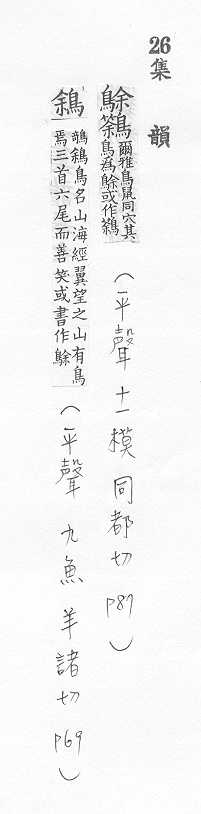 26 集韻
鵌鷋
爾雅鳥鼠同穴其
鳥爲鵌或作鷋
（平聲十一模 同都切 P89）
鵌
鵸鵌鳥名山海經翼望之山有鳥
焉三首六尾而善笑或書作鵌
（平聲 九魚 羊諸切 P69）